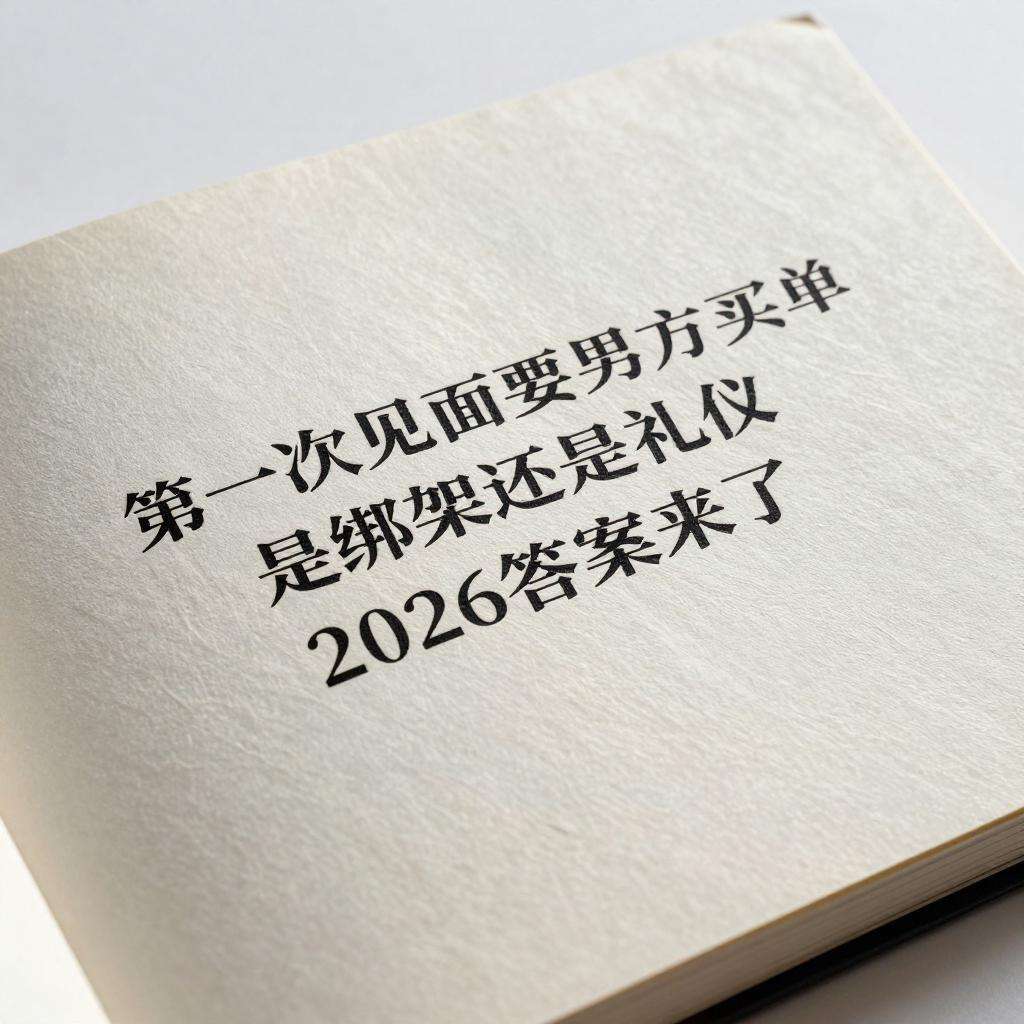 第一次见面要男方买单
是绑架还是礼仪
2026答案来了